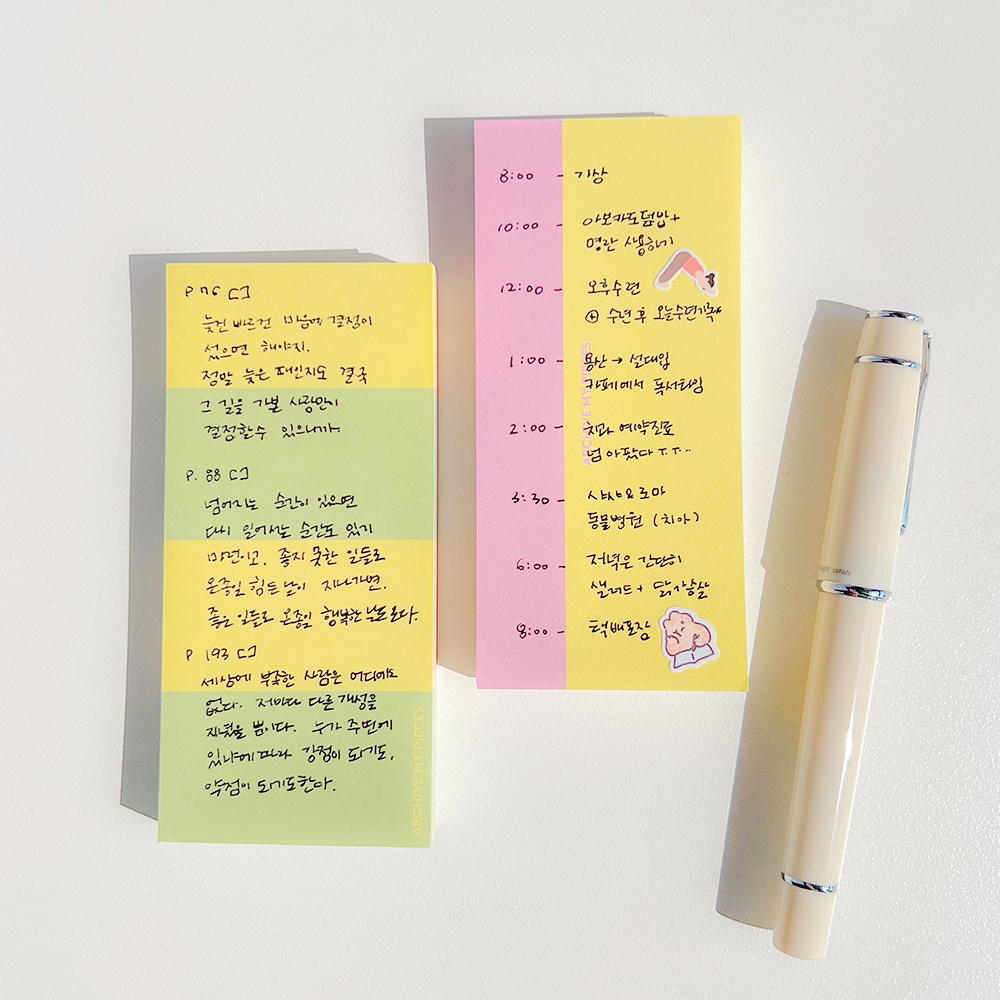 P 76 [ ]
늦건 빠르건 마음에 결정이
섰으면 해야지.
정말 늦은 때인지도 결국
그 길을 가본 사람만이
결정할수 있으니까.
P. 88 [ ]
넘어지는 순간이 있으면
다시 일어서는 순간도 있기
마련이고, 좋지 못한 일들로
온종일 힘든 날이 지나가면.
좋은 일들로 온종일 행복한 날도 온다.
P 193 [ ]
세상에 부족한 사람은 어디에도
없다. 저마다 다른 개성을
지녔을 뿐이다. 누가 주변에
있냐에 따라 강점이 되기도,
약점이 되기도한다.
ARCHIVE MY PIECES.
8:00 - 기상
10:00 - 아보카도덮밥+
명란 사용하기
12:00 - 오후수련
⊕ 수련 후 오늘수련기록*
1:00 - 용산 → 설대입
카페에서 독서타임
2:00 - 치과 예약진료
넘 아팠다 ㅠㅠ..
3:30 - 샤샤요로마
동물병원 (치아)
6:00 - 저녁은 간단히
샐러드 + 닭가슴살
8:00 - 택배포장
ARCHIVE MY PIECES.
JAPAN